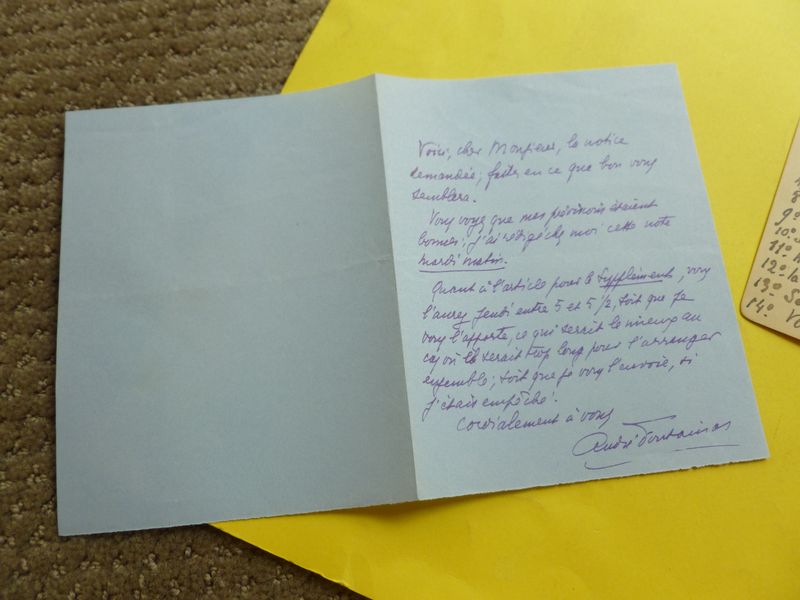 Voici, cher Monsieur, la notice
demandée; faites en ce que bon vous
semblera.
Vous voyez que mes prévisions étaient
bonnes; j'ai rédigé chez moi cette note
mardi matin.
Quant à l'article pour le Supplément, vous
l'aurez Jeudi entre 5 et 5 1/2, soit que je
vous l'apporte, ce qui serait le mieux au
cas où il serait trop long pour l'arranger
ensemble; soit que je vous l'envoie, si
j'étais empêché.
Cordialement à vous
André Fontainas
9º
10º
11º
12º la
13º
14º